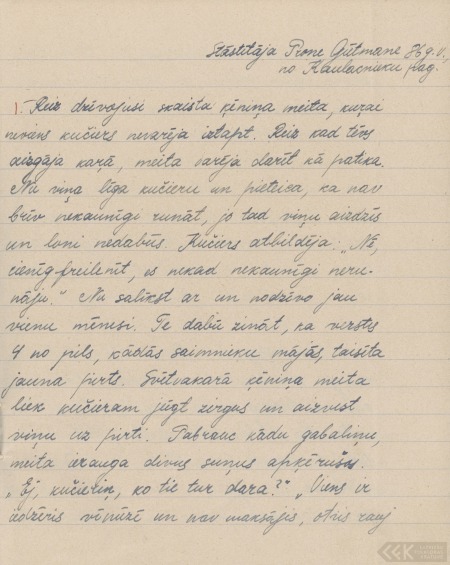 Stāstītāja Prone Gūtmane 86 g. v.,
no Kaulacnuku pag.
1. Reiz dzīvojusi skaista ķēniņa meita, kuŗai
nevens kučiers nevarēja iztapt. Reiz kad tēvs
aizgāja karā, meita varēja darīt kā patika.
Nu viņa līga kučieru un pieteica, ka nav
brīv nekaunīgi runāt, jo tad viņu aizdzīs
un loni nedabūs. Kučiers atbildēja: „Nē,
cienīg freilenīt, es nekad nekaunīgi neru-
nāju." Nu salīkst ar un nodzīvo jau
vienu mēnesi. Te dabū zināt, ka verstis
4 no pils, kādās saimnieku mājās, taisīta
jauna pirts. Svētvakarā ķēniņa meita
liek kučieram jūgt zirgus un aizvest
viņu uz pirti. Pabrauc kādu gabaliņu,
meita ierauga divus suņus apķērušos.
„Ej, kučieriņ, ko tie tur dara?" „Viens ir
iedzēris vīnūzī un nav maksājis, otris rauj